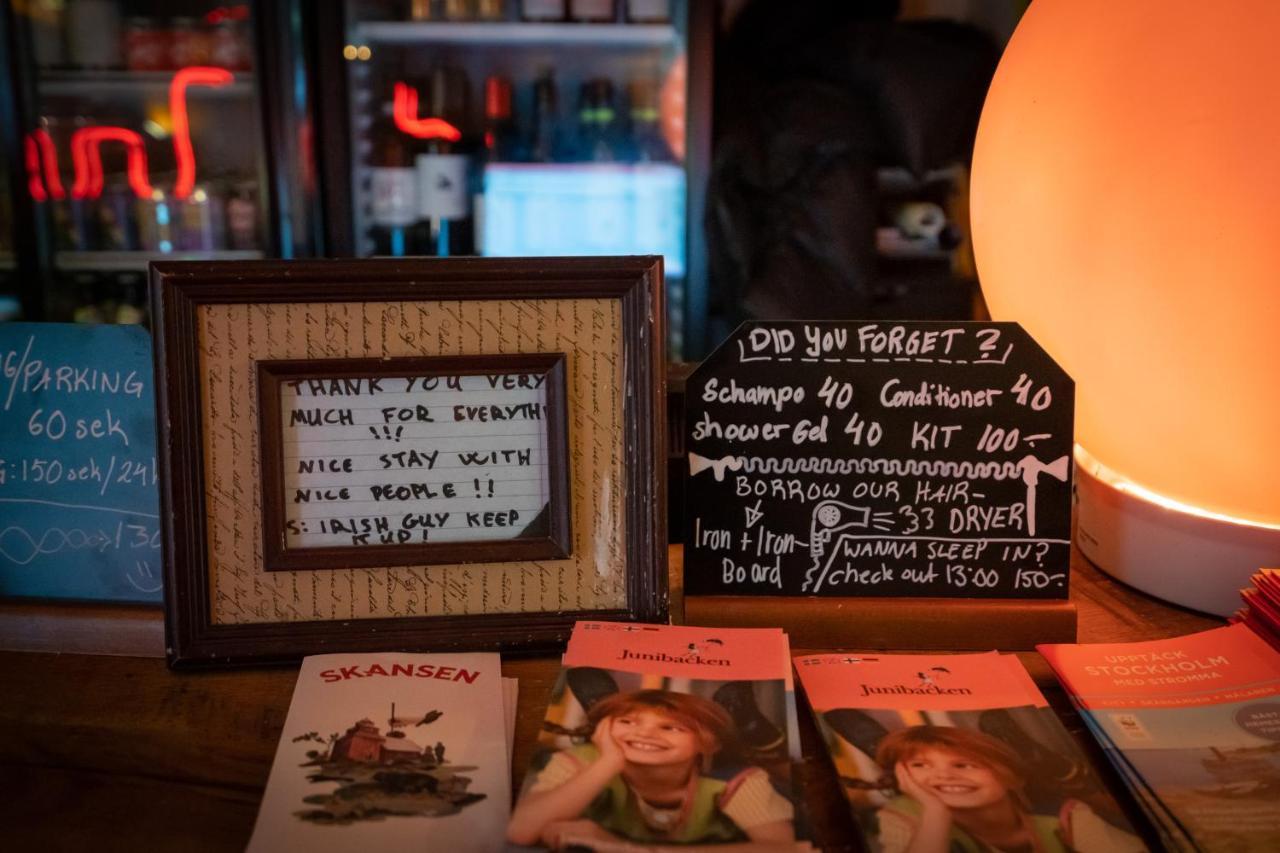 /PARKING
60 sek
: 150 sek/24
THANK YOU VERY
MUCH FOR EVERYTH
!!!
NICE STAY WITH
NICE PEOPLE !!
S: IRISH GUY KEEP
UP!
DID YOU FORGET ?
Schampo 40 Conditioner 40
shower Gel 40 KIT 100:-
BORROW OUR HAIR-
DRYER
Iron + Iron-
Board
WANNA SLEEP IN?
check out 13:00 150:-
SKANSEN
Junibacken
Junibacken
UPPTÄCK
STOCKHOLM
MED STROMMA